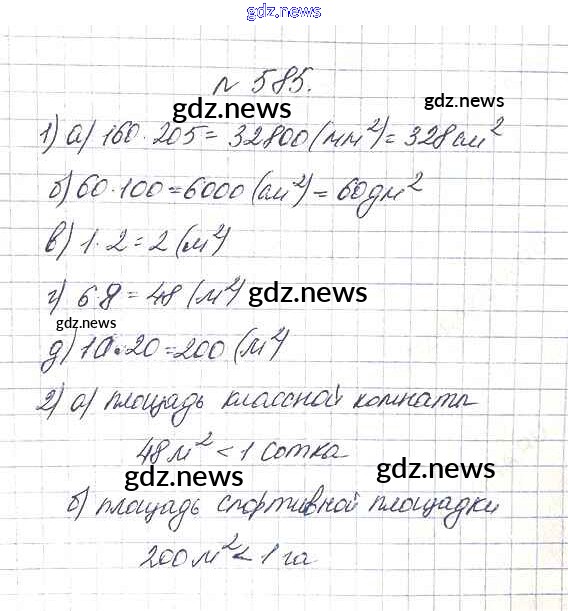 gdz.news
№ 585.
gdz.news gdz.news
1) а) 160·205 = 32800 (мм²) = 328 см²
б) 60·100 = 6000 (см²) = 60 дм²
в) 1·2 = 2 (м²)
г) 6·8 = 48 (м²) gdz.news
gdz.news
д) 10·20 = 200 (м²)
2) а) площадь классной комнаты
48 м² < 1 сотка
gdz.news gdz.news
б) площадь спортивной площадки
200 м² < 1 га
gdz.news